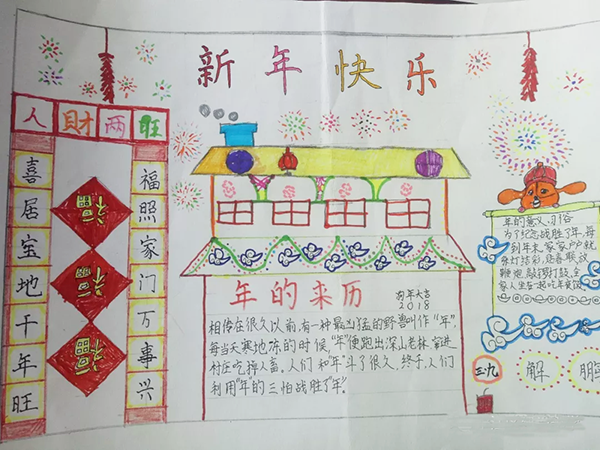 新年快乐
人财两旺
喜居宝地千年旺
福照家门万事兴
福
福
福
年的来历
狗年大吉
2018
相传在很久以前,有一种最凶猛的野兽叫作"年",
每当天寒地冻的时候,"年"便跑出深山老林,窜进
村庄吃掉人畜。人们和"年"斗了很久,终于,人们
利用"年的三怕战胜了年"。
年的意义、习俗
为了纪念战胜了年,每
到年末,家家户户就